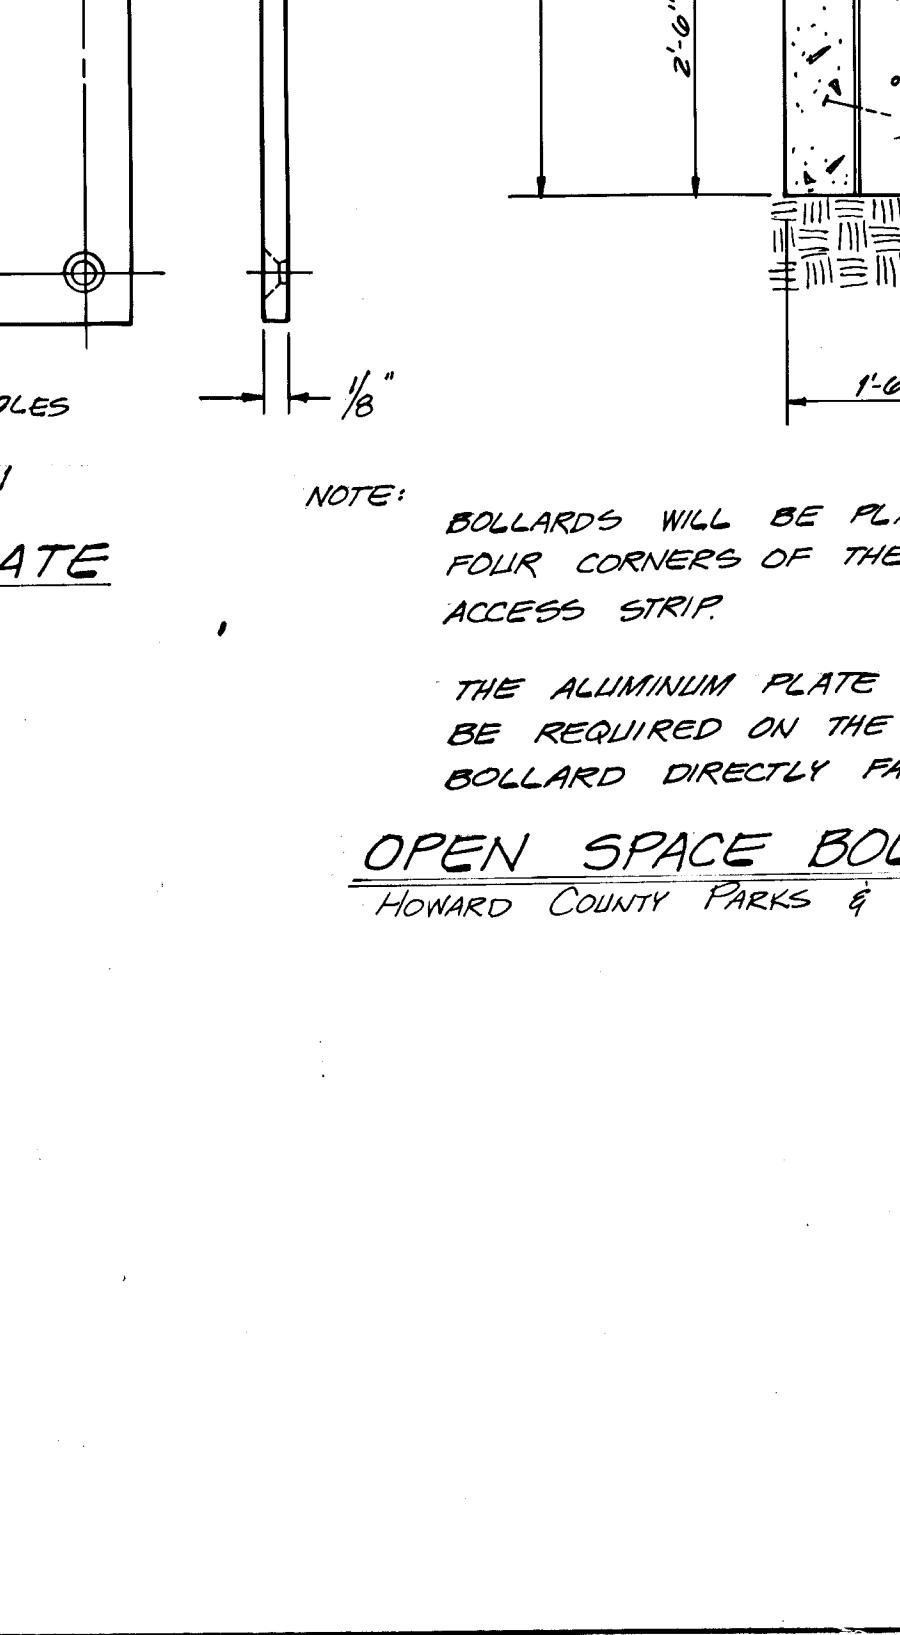 2'-6"
1/8"
NOTE:
BOLLARDS WILL BE
FOUR CORNERS OF THE
ACCESS STRIP.
THE ALUMINUM PLATE
BE REQUIRED ON THE
BOLLARD DIRECTLY
OPEN SPACE
HOWARD COUNTY PARKS &